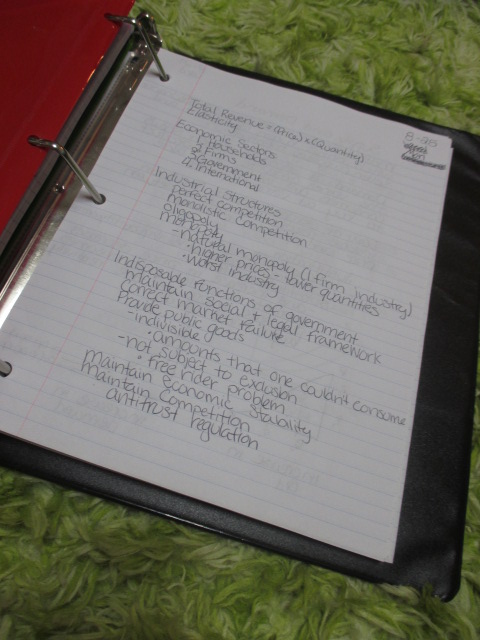 8-28
Econ
Total Revenue = (Price) x (Quantity)
Elasticity
Economic Sectors
1. Households
2. Firms
3. Government
4. International
Industrial structures
perfect competition
monolistic competition
Oligopoly
monopoly
-natural monopoly (1 firm industry)
• higher prices - lower quantities
• worst industry
Indisposable functions of government
maintain social + legal framework
Correct market failure
Provide public goods
-indivisible
• amounts that one couldn't consume
-not subject to exclusion
• free rider problem
maintain Economic Stability
maintain Competition
antitrust regulation